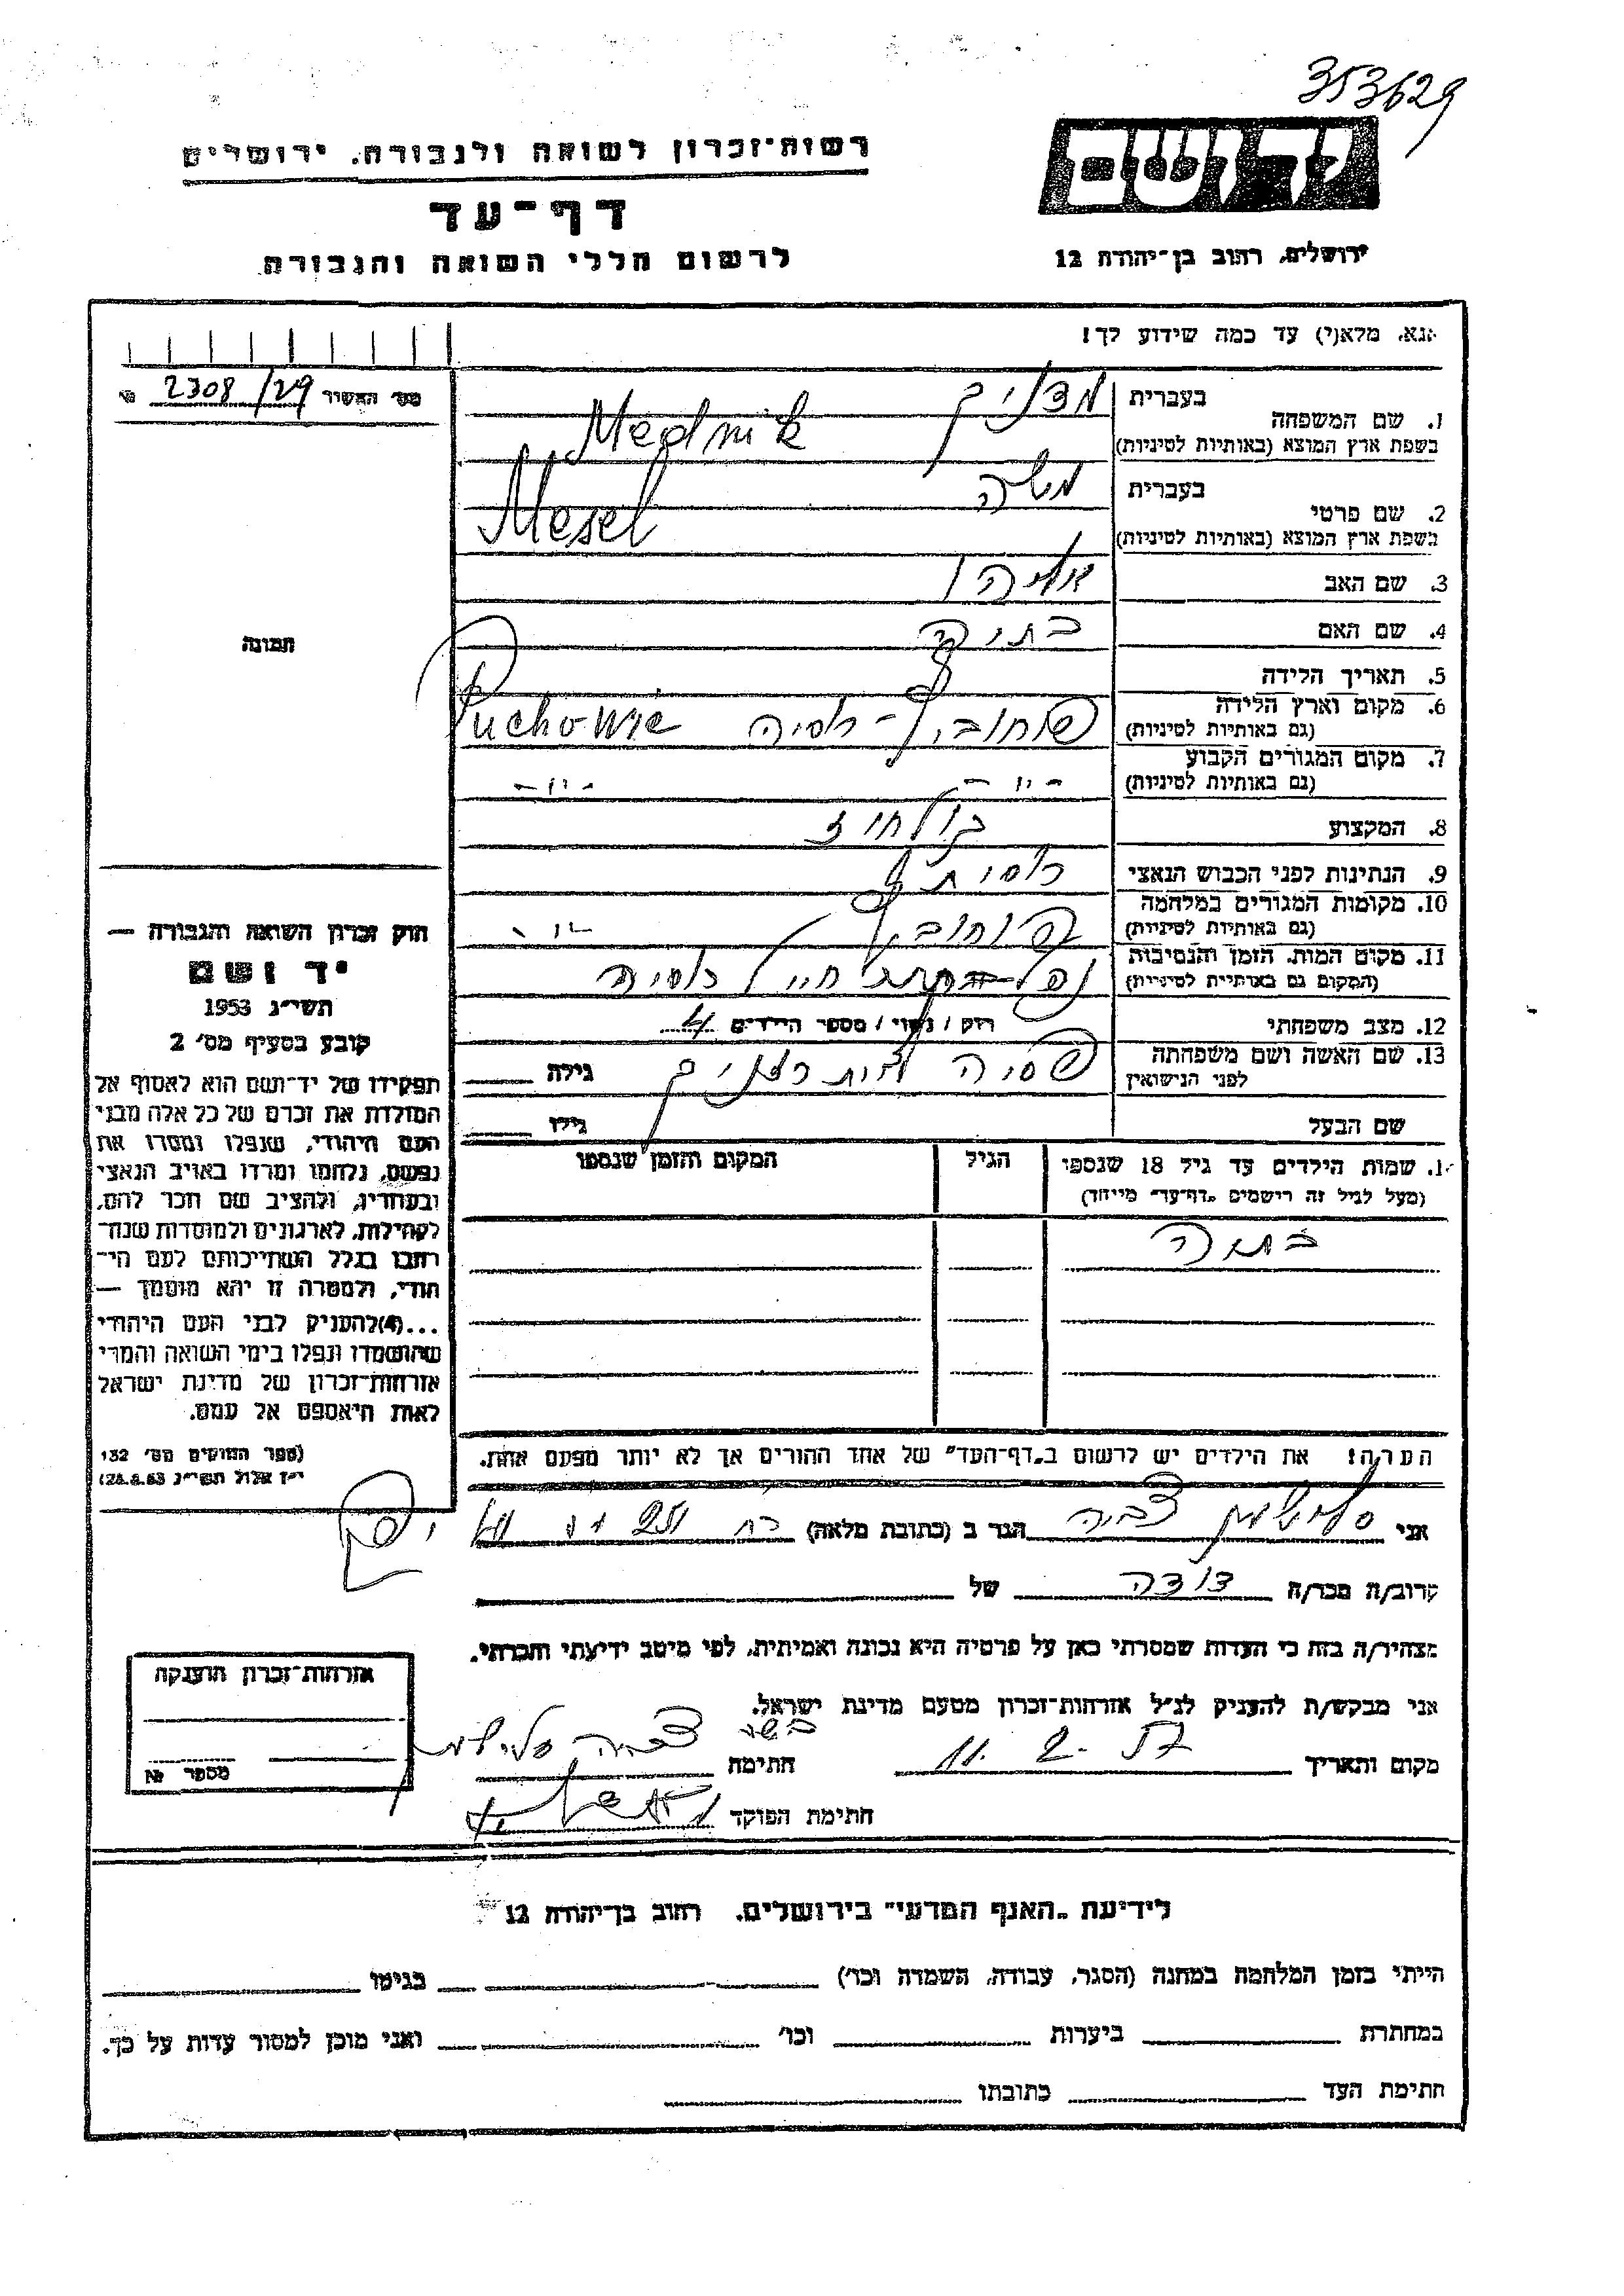 353629
רשות-זכרון לשואה ולגבורה, ירושלים
יד ושם
דף-עד
ירושלים, רחוב בן-יהודה 12
לרשום חללי השואה והגבורה
אנא, מלא(י) עד כמה שידוע לך!
מס' האשיר 2308/29
1. שם המשפחה בעברית מדניק
בשפת ארץ המוצא (באותיות לטיניות) Mednik
2. שם פרטי בעברית משה
בשפת ארץ המוצא (באותיות לטיניות) Mesel
3. שם האב אליהו
4. שם האם בתיה
תמונה
5. תאריך הלידה
6. מקום וארץ הלידה (גם באותיות לטיניות) פוחוביץ - רוסיה Puchowic
7. מקום המגורים הקבוע (גם באותיות לטיניות) - יי - - יי -
8. המקצוע קולחוז
9. הנתינות לפני הכבוש הנאצי רוסית
10. מקומות המגורים במלחמה (גם באותיות לטיניות) פוחוביץ - יי -
11. מקום המות, הזמן והנסיבות (המקום גם באותיות לטיניות) נפל חייל רוסיה
12. מצב משפחתי רווק / נשוי / מספר הילדים 4
13. שם האשה ושם משפחתה לפני הנישואין פסיה גילה
שם הבעל גילו
חוק זכרון השואה והגבורה —
יד ושם
תשי״ג 1953
קובע בסעיף מס' 2
תפקידו של יד-ושם הוא לאסוף אל
המולדת את זכרם של כל אלה מבני
העם היהודי, שנפלו ומסרו את
נפשם, נלחמו ומרדו באויב הנאצי
ובעוזריו, ולהציב שם וזכר להם,
לקהילות, לארגונים ולמוסדות שנח-
רבו בגלל השתייכותם לעם הי-
הודי, ולמטרה זו יהא מוסמך —
...(4) להעניק לבני העם היהודי
שהושמדו ונפלו בימי השואה והמרי
אזרחות-זכרון של מדינת ישראל
לאות היאספם אל עמם.
(ספר החוקים מס' 132
י״ז אלול תשי״ג 28.8.53)
1. שמות הילדים עד גיל 18 שנספו הגיל המקום והזמן שנספו
(מעל לגיל זה רישמים „דף-עד״ מייחד)
בתיה
הערה! את הילדים יש לרשום ב„דף-העד״ של אחד ההורים אך לא יותר מפעם אחת.
אני צביה הגר ב (כתובת מלאה) רח
קרוב/ה מכר/ה דודה של
מצהיר/ה בזה כי העדות שמסרתי כאן על פרטיה היא נכונה ואמיתית, לפי מיטב ידיעתי והכרתי.
אני מבקש/ת להעניק לנ״ל אזרחות-זכרון מטעם מדינת ישראל.
מקום ותאריך 11. 2. 57 חתימה צביה
חתימת הפוקד
אזרחות-זכרון הוענקה
מספר №
לידיעת „האגף המדעי״ בירושלים, רחוב בן-יהודה 12
הייתי בזמן המלחמה במחנה (הסגר, עבודה, השמדה וכו') בגיטו
במחתרת ביערות וכו' ואני מוכן למסור עדות על כך.
חתימת העד כתובתו